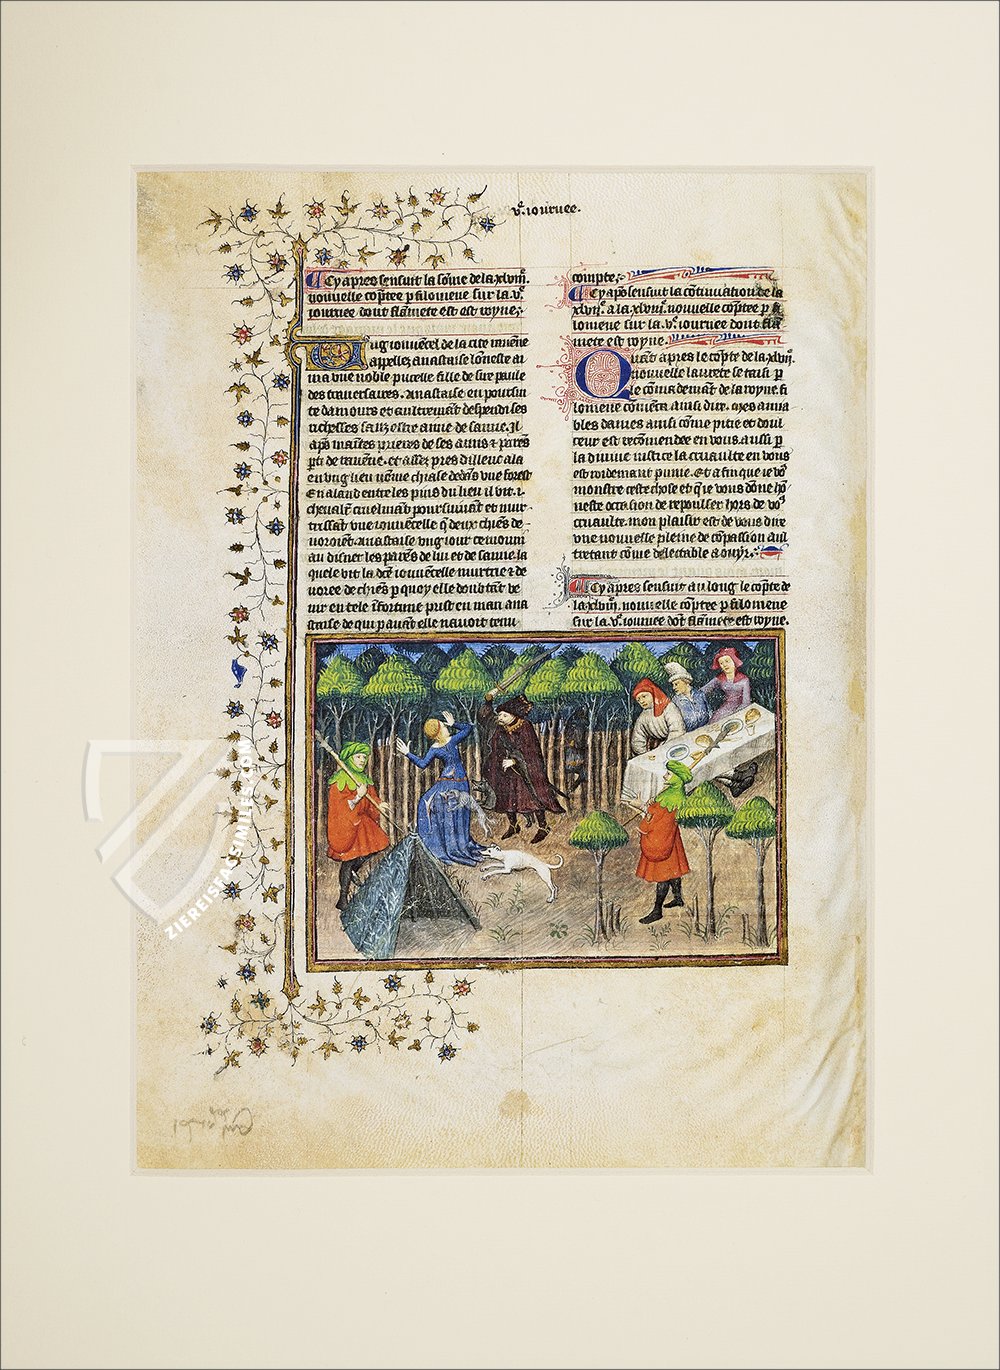 v̄e. iournee.
Cy apres sensuit la sōme de la .xlviij.
nouuelle cōptee ꝑ filomene sur la .ve.
iournee dont flāmete est est royne;
Ung iouuencel de la cite rauēne
appellez anastaise loneste ai
ma vne noble pucelle fille de sire paule
des trauersaires. Anastaise en poursui
te damours et aultrement despendi ses
richesses sauz estre amé de samie. Il
apͤs maītes prieres de ses amis ⁊ parēs
ꝑti de rauēne. et assez pres dilleuc ala
en ung lieu nōme chiase dedēs vne forest
En alant entre les pins du lieu il vit .i.
cheualr̄ cruelmāt poursuiuant et mur-
trissāt vne iouuēcelle q̄ deux chiēs de-
uoroient. Anastaise ung iour cōuoiou
au disner les parēs de lui et de samie. la
quele vit la dcē iouuēncelle murtrie ⁊ de
uoree de chiēs ꝑ quoy elle doubtāt ve
nir en tele īfortune prist en mari ana
staise de qui ꝑ auāt elle nauoit tenu
compte;
Cy apͤs sensuit la cōtinuation de la
.xlvijͤ. a la .xlviij. nouuelle cōptee ꝑ fi
lomene sur la .ve. iournee dont flā
mete est royne.
Quāt apres le cōpte de la .xlvijͤ.
nouuelle laurete se taisi ꝑ
le cōmādemāt de la royne. fi
lomene cōmēca ainsi dire. Mes amia
bles dames ainsi cōme pitie et doul
ceur est recōmendee en vous. aussi ꝑ
la diuine iustice la cruaulte en vous
est roidemant punie. Et a fin que ie voꝰ
monstre ceste chose et q̄ ie vous dōne hō
neste occasion de repoulser hors de voꝰ
cruaulte. mon plaisir est de vous dire
vne nouuelle pleine de compassion aul
tretant cōme delectable a oyr.
Cy apres sensuit au long le cōpte de
la .xlviij. nouuelle cōptee ꝑ filomene
sur la .ve. iournee dōt flāmete est royne.
ZIEREISFACSIMILES.COM